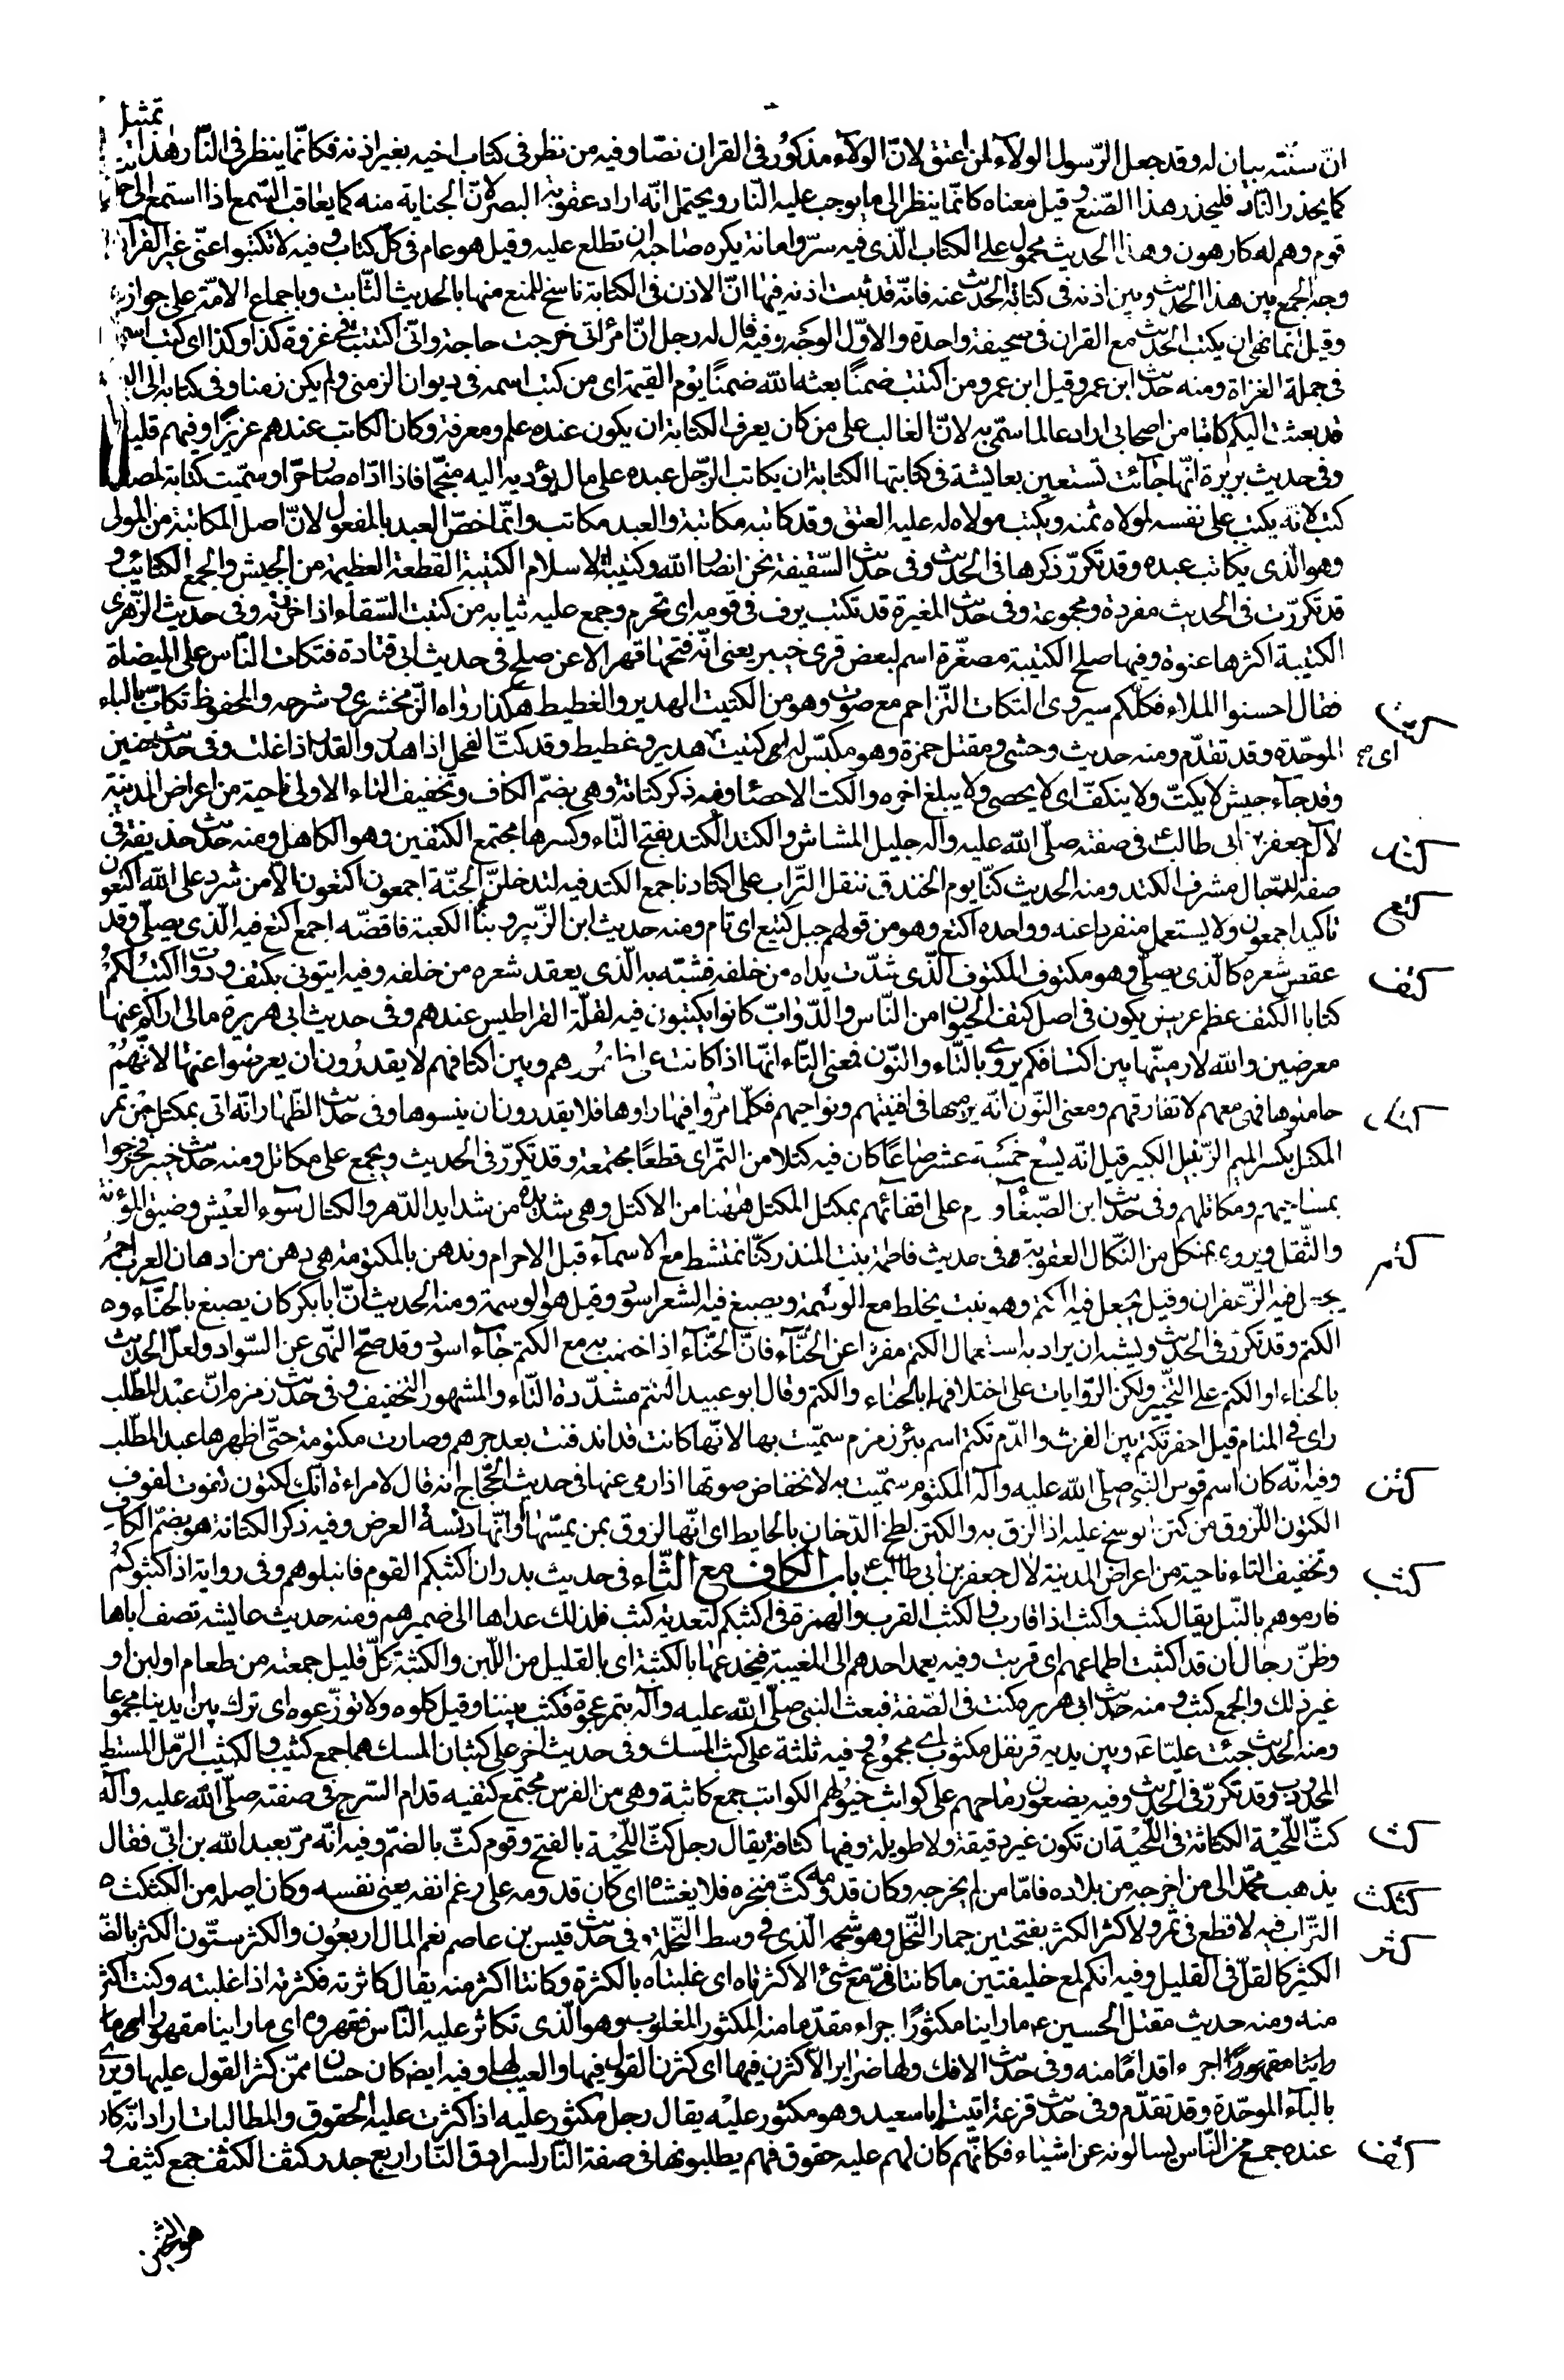 تمثيل
انّ سنّته بيان له وقد جعل الرّسول الولآء لمن اعتق لانّ الولآء مذكور فى القران نصّا وفيه من نظر فى كتاب اخيه بغير اذنه فكانّما ينظر فى النّار هذا
كما يحذر النّار فليحذر هذا الصّنع وقيل معناه كانّما ينظر الى ما يوجب عليه النّار ويحتمل انّه اراد عقوبة البصر لانّ الجناية منه كما يعاقب السّمع اذا استمع الى
قوم وهم له كارهون وهذا الحديث محمول على الكتاب الّذى فيه سرّ وامانة يكره صاحبه ان تطلع عليه وقيل هو عام فى كلّ كتاب وفيه لا تكتبوا عنّى غير القران
وجه الجمع بين هذا الحديث وبين اذنه فى كتابة الحديث عنه فانّه قد ثبت اذنه فيها انّ الاذن فى الكتابة ناسخ للمنع منها بالحديث الثّابت وباجماع الامّة على جوازه
وقيل انّما نهى ان يكتب الحديث مع القران فى صحيفة واحدة والاوّل الوجه وفيه قال له رجل انّ امرأتى خرجت حاجة وانّى اكتتبت فى غزوة كذا وكذا اى كتب اسمى
فى جملة الغزاة ومنه حديث ابن عمر وقيل ابن عمرو من اكتتب ضمنًا بعثه الله ضمنًا يوم القيمة اى من كتب اسمه فى ديوان الزمنى ولم يكن زمنا وفى كتابه الى
قد بعثت اليكم كاتبا من اصحابى اراد عالما سمّى به لانّ الغالب على من كان يعرف الكتابة ان يكون عنده علم ومعرفة وكان الكاتب عندهم عزيزًا وفيهم قليلا
وفى حديث بريرة انّها جآئت تستعين بعايشة فى كتابتها الكتابة ان يكاتب الرّجل عبده على مال يؤديه اليه منجّما فاذا ادّاه صار حرّا وسمّيت كتابة لمصدر
كتب لانّه يكتب على نفسه لمولاه ثمنه ويكتب مولاه له عليه العتق وقد كاتبه مكاتبة والعبد مكاتب وانّما خصّ العبد بالمفعول لانّ اصل المكاتبة من المولى
وهو الّذى يكاتب عبده وقد تكرّر ذكرها فى الحديث وفى حديث السّقيفة نحن انصار الله وكتيبة الاسلام الكتيبة القطعة العظيمة من الجيش والجمع الكتايب و
قد تكرّرت فى الحديث مفردة ومجموعة وفى حديث المغيرة قد تكتب يزف فى قومه اى تحزم وجمع عليه ثيابه من كتبت السّقاء اذا خرزته وفى حديث الزّهرى
الكتيبة اكثرها عنوة وفيها صلح الكتيبة مصغّرة اسم لبعض قرى خيبر يعنى انّه فتحها قهرا لا عن صلح فى حديث ابى قتادة فتكاتّ النّاس على الميضاة
كتت فقال احسنوا الملاء فكلّكم سيروى التكاتّ التّزاحم مع صوت وهو من الكتيت الهدير والغطيط هكذا رواه الزّمخشرى وشرحه والمحفوظ تكابّ بالباء
الموحّدة وقد تقدّم ومنه حديث وحشى ومقتل حمزة وهو مكبّس له كتيت اى هدير وغطيط وقد كتّ الفحل اذا هدر والقدر اذا غلت وفى حديث حنين
وقد جآء جيش لا يكتّ ولا ينكفّ اى لا يحصى ولا يبلغ اخره والكتّ الاحصاء وفيه ذكر كتانة وهى بضمّ الكاف وتخفيف التاء الاولى ناحية من اعراض المدينة
كتد لآل جعفر بن ابى طالب ع فى صفته صلّى الله عليه واله جليل المشاش والكتد الكتد بفتح التّاء وكسرها مجتمع الكتفين وهو الكاهل ومنه حديث حذيفة فى
صفة الدّجال مشرف الكتد ومنه الحديث كنّا يوم الخندق ننقل التّراب على اكتادنا جمع الكتد فيه لتدخلنّ الجنّة اجمعون اكتعون الّا من شرد على الله اكتعون
كتع تاكيد اجمعون ولا يستعمل منفردا عنه وواحده اكتع وهو من قولهم جبل كتيع اى تام ومنه حديث ابن الزّبير وبنآء الكعبة فاقضّه اجمع اكتع فيه الّذى يصلّى وقد
كتف عقص شعره كالّذى يصلّى وهو مكتوف المكتوف الّذى شدّت يداه من خلفه فشبّه به الّذى يعقد شعره من خلفه وفيه ايتونى بكتف ودواة اكتب لكم
كتابا الكتف عظم عريض يكون فى اصل كتف الحيوان من النّاس والدّوابّ كانوا يكتبون فيه لقلّة القراطيس عندهم وفى حديث ابى هريرة مالى اراكم عنها
معرضين والله لارمينّها بين اكتافكم يروى بالتّاء والنّون فمعنى التّاء انّها اذا كانت على ظهورهم وبين اكتافهم لا يقدرون ان يعرضوا عنها لانّهم
كتل حاملوها فهى معهم لا تفارقهم ومعنى النّون انّه يرميها فى افنيتهم ونواحيهم فكلّما مرّوا فيها راوها فلا يقدرون ان ينسوها وفى حديث الظّهار انّه اتى بمكتل من تمر
المكتل بكسر الميم الزّنبيل الكبير قيل انّه يسع خمسة عشر صاعًا كان فيه كتلا من التّمر اى قطعًا مجتمعة وقد تكرّر فى الحديث ويجمع على مكاتل ومنه حديث خيبر فخرجوا
بمساحيهم ومكاتلهم وفى حديث ابن الصّبغآء وارم على اقفائهم بمكتل المكتل ههنا من الاكتل وهى شديدة من شدايد الدّهر والكتال سوء العيش وضيق المؤنة
والثّقل ويروى بمنكل من النّكال العقوبة وفى حديث فاطمة بنت المنذر كنّا نمتشط مع الاسمآء قبل الاحرام وندهن بالمكتومة هى دهن من ادهان العرب احمر
كتم يجعل فيه الزّعفران وقيل يجعل فيه الكتم وهو نبت يخلط مع الوسمة ويصبغ فيه الشعر اسود وقيل هو الوسمة ومنه الحديث انّ ابابكر كان يصبغ بالحنّآء و
الكتم وقد تكرّر فى الحديث ويشبه ان يراد به استعمال الكتم مفردا عن الحنّآء فانّ الحنّآء اذا خضب به مع الكتم جآء اسود وقد صحّ النّهى عن السّواد ولعلّ الحديث
بالحناء او الكتم على التّخيير ولكن الرّوايات على اختلافها بالحناء والكتم وقال ابو عبيد الكتم مشدّدة التّاء والمشهور التخفيف وفى حديث زمزم انّ عبد المطّلب
راى فى المنام قيل احفر تكتم بين الفرث والدّم تكتم اسم بئر زمزم سمّيت بها لانّها كانت قد اندفنت بعد جرهم وصارت مكتومة حتّى اظهرها عبد المطّلب
وفيه انّه كان اسم قوس النّبى صلّى الله عليه وآله المكتوم سمّيت به لانخفاض صوتها اذا رمى عنها فى حديث الحجّاج انه قال لامراءة انّك لكتون لفوت لقوف
كتن الكتون اللّزوق من كتن الوسخ عليه اذا لزق به والكتن لطخ الدّخان بالحايط اى انّها لزوق بمن يمسّها او انّها دنسة العرض وفيه ذكر الكتانة هو بضمّ الكاف
كثب وتخفيف التاء ناحية من اعراض المدينة لال جعفر بن ابى طالب ع باب الكاف مع الثّاء فى حديث بدر ان اكثبكم القوم فانبلوهم وفى رواية اذا اكثبوكم
فارموهم بالنّبل يقال كثب واكثب اذا قارب والكثب القرب والهمزة فى اكثبكم لتعدية كثب فلذلك عداها الى ضميرهم ومنه حديث عايشه تصف اباها
وظنّ رجال ان قد اكثبت اطماعهم اى قربت وفيه يعمد احدهم الى المغيبة فيخدعها بالكثبة اى بالقليل من اللّبن والكثبة كلّ قليل جمعته من طعام او لبن او
غير ذلك والجمع كثب ومنه حديث ابى هريره كنت فى الصّفة فبعث النبى صلّى الله عليه وآله بتمر عجوة فكثب بيننا وقيل كلوه ولا توزّعوه اى ترك بين ايدينا مجموعا
ومنه الحديث جئت عليّا ع وبين يديه قرنفل مكثوب اى مجموع وفيه ثلثة على كثب المسك وفى حديث اخر على كثبان المسك هما جمع كثيب والكثيب الرّمل المستطيل
المحدودب وقد تكرّر فى الحديث وفيه يضعون رماحهم على كواثب خيولهم الكواثب جمع كاثبة وهى من الفرس مجتمع كتفيه قدام السّرج فى صفته صلّى الله عليه وآله
كث كثّ اللّحية الكثاثة فى اللّحية ان تكون غير دقيقة ولا طويلة وفيها كثافة يقال رجل كثّ اللّحية بالفتح وقوم كثّ بالضمّ وفيه انّه مرّ بعبد الله بن ابىّ فقال
كثكث يذهب محمّد الى من اخرجه من بلاده فامّا من لم يخرجه وكان قدومه كثّ منخره فلا يغشاه اى كان قدومه على رغم انفه يعنى نفسه وكان اصله من الكثكث
كثر التّراب فيه لا قطع فى ثمر ولا كثر الكثر بفتحتين جمار النّخل وهو شحمه الّذى فى وسط النّخلة وفى حديث قيس بن عاصم نعم المال اربعون والكثر ستّون الكثر بالضّم
الكثير كالقلّ فى القليل وفيه انكم لمع خليقتين ما كانتا مع شئ الّا كثرتاه اى غلبتاه بالكثرة وكانتا اكثر منه يقال كاثرته فكثرته اذا غلبته وكنت اكثر
منه ومنه حديث مقتل الحسين ع ما راينا مكثورًا اجراء مقدّما منه المكثور المغلوب وهو الّذى تكاثر عليه النّاس فقهروه اى ما راينا مقهورا
راينا مقهورًا اجرء اقدامًا منه وفى حديث الافك ولها ضراير الّا كثرن فيها اى كثرن القول فيها والعيب لها وفيه ايضا كان حسان ممّن كثر القول عليها ويروى
بالبآء الموحّدة وقد تقدّم وفى حديث قزعة اتيت ابا سعيد وهو مكثور عليه يقال رجل مكثور عليه اذا كثرت عليه الحقوق والمطالبات اراد انّه كان
كثف عنده جمع من النّاس يسالونه عن اشياء فكانّهم كان لهم عليه حقوق فهم يطلبونها فى صفة النّار لسرادق النّار اربع جدر كثف الكثف جمع كثيف و
هو الثخين